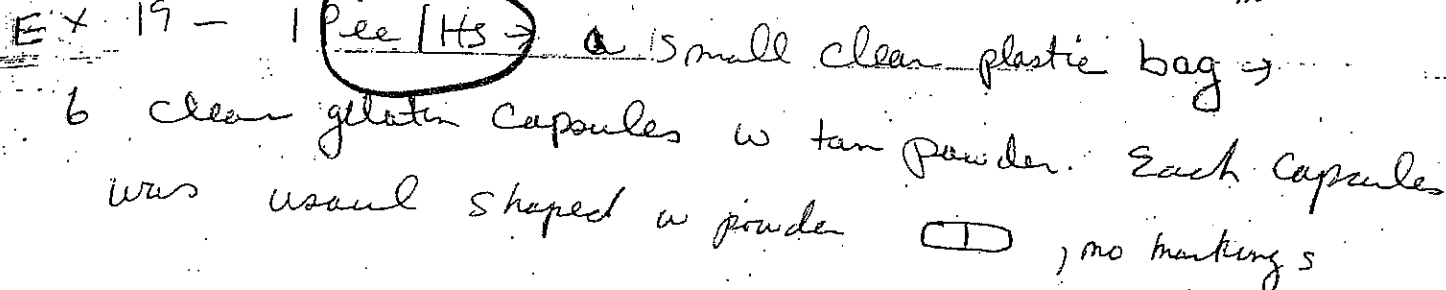 Ex 19 - 1 Pee/HS → a small clear plastic bag →
6 clear gelatin capsules w tan powder. Each capsules
was usaul shaped w powder , no markings